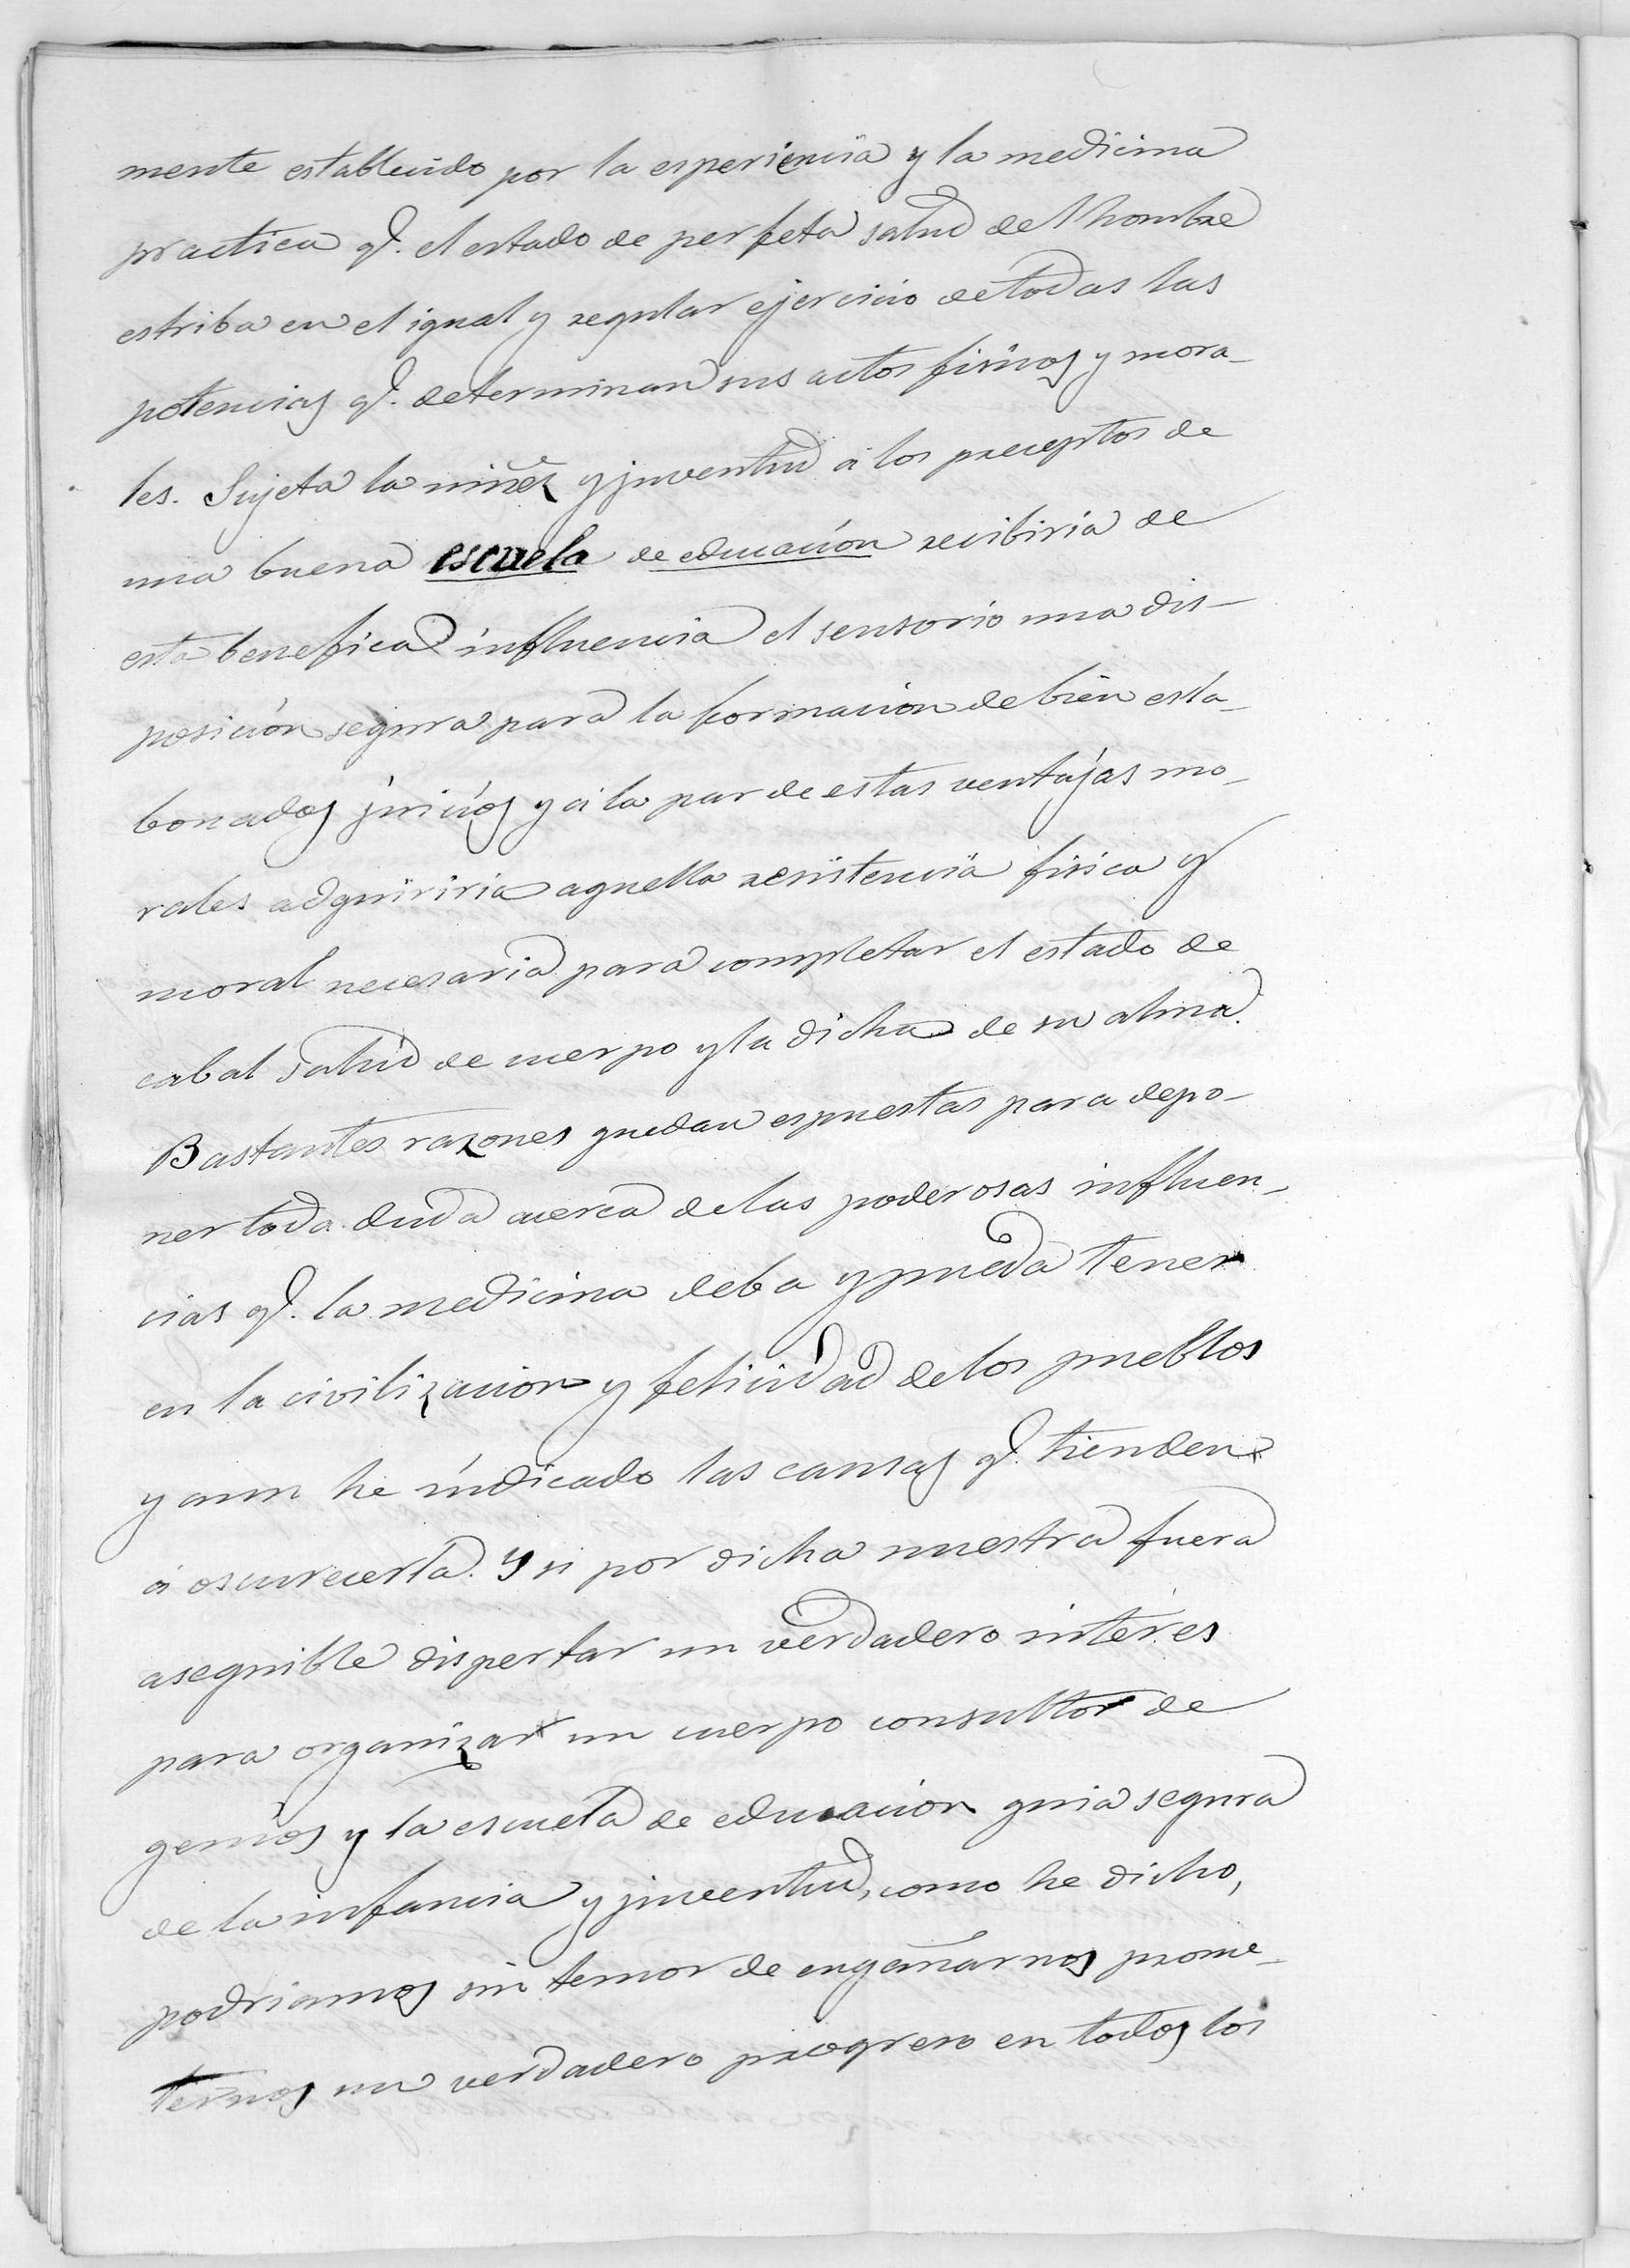 mente establecido por la esperiencia y la medicina
practica q.e el estado de perfeta salud del hombre
estriba en el igual y regular ejercicio de todas las
potencias q.e determinan sus actos fisicos y mora-
les. Sujeta la niñez y juventud á los preceptos de
una buena escuela de educación recibiria de
esta benefica influencia el sensorio una dis-
posición segura para la formacion de bien esla-
bonados juicios y á la par de estas ventajas mo-
rales adquiriria aquella resistencia fisica y
moral necesaria para completar el estado de
cabal salud de cuerpo y la dicha de su alma.
Bastantes razones quedan espuestas para depo-
ner toda duda acerca de las poderosas influen-
cias q.e la medicina deba y pueda tener
en la civilizacion y felicidad de los pueblos
y aun he indicado las causas q.e tienden
á oscurecerla. Y si por dicha nuestra fuera
asequible dispertar un verdadero interes
para organizar un cuerpo consultor de
genios y la escuela de educacion guia segura
de la infancia y juventud, como he dicho,
podriamos sin temor de engañarnos prome-
ternos un verdadero progreso en todos los